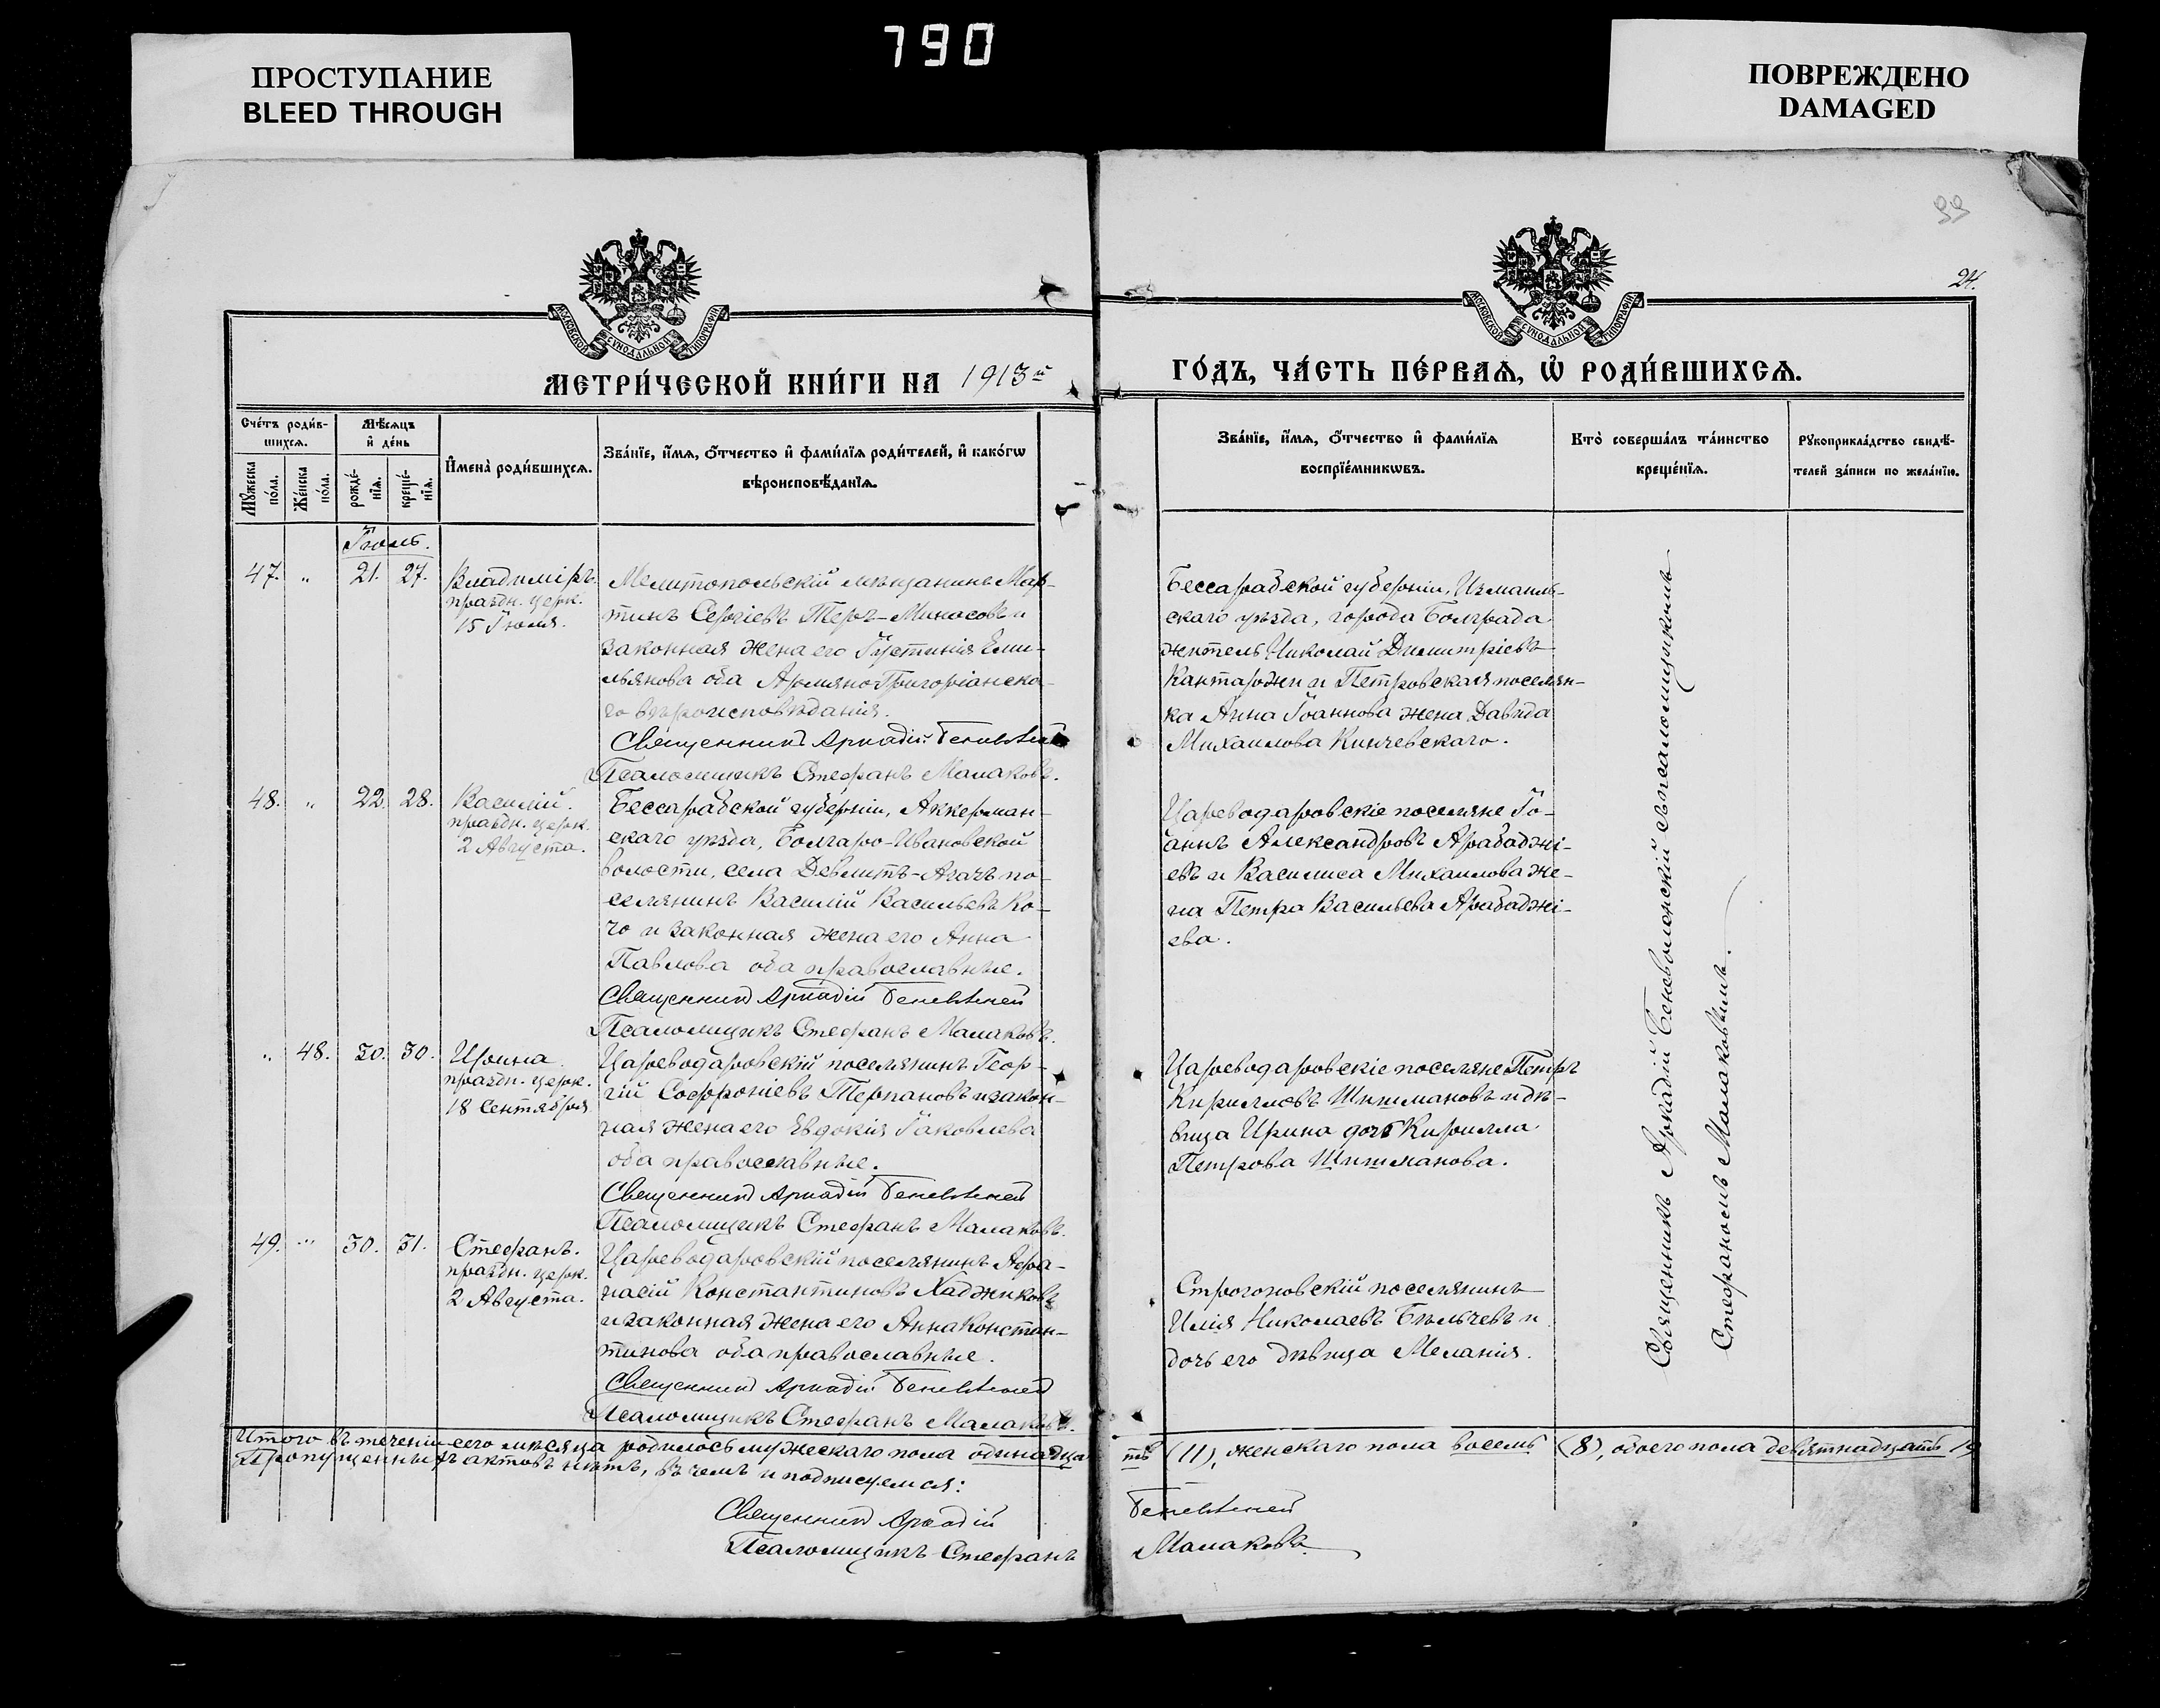 790
ПРОСТУПАНИЕ
BLEED THROUGH
ПОВРЕЖДЕНО
DAMAGED
24.
МОСКОВСКОЙ СѴНОДАЛЬНОЙ ТИПОГРАФІИ
МОСКОВСКОЙ СѴНОДАЛЬНОЙ ТИПОГРАФІИ
МЕТРИ́ЧЕСКОЙ КНИ́ГИ НА 1913й
ГО́ДЪ, ЧА́СТЬ ПЕ́РВАѦ, Ѡ҆ РОДИ́ВШИХСѦ.
Сче́тъ роди́в-
шихсѧ.
Мѹ́жеска по́ла.
Же́нска по́ла.
Мѣ́сѧцъ
и҆ де́нь
рожде́-
нїѧ.
креще́-
нїѧ.
И҆мена̀ роди́вшихсѧ.
Зва́нїе, и҆́мѧ, ѻ҆́тчество и҆ фами́лїѧ роди́телей, и҆ како́гѡ
вѣроисповѣ́данїѧ.
Зва́нїе, и҆́мѧ, ѻ҆́тчество и҆ фами́лїѧ
воспрїе́мникѡвъ.
Кто̀ соверша́лъ та́инство
креще́нїѧ.
Рѹкоприкла́дство свидѣ́-
телей за́писи по жела́нїю.
Іюль.
47. " 21. 27. Владиміръ.
праздн. церк.
15 Іюля.
Мелитопольскій мѣщанинъ Мар-
тинъ Сергіевъ Теръ-Миносовъ и
законная жена его Іустинія Еми-
льянова оба Армяно-Григоріанска-
го вѣроисповѣданія.
Священникъ Аркадій Беневоленскій
Псаломщикъ Стефанъ Малаковъ.
Бессарабской губерніи, Измаиль-
скаго уѣзда, города Болграда
житель Николай Димитріевъ
Кантаржи и Петровская поселян-
ка Анна Іоаннова жена Давида
Михаилова Кинчевскаго.
48. " 22. 28. Василій.
праздн. церк.
2 Августа.
Бессарабской губерніи, Аккерман-
скаго уѣзда, Болгаро-Ивановской
волости, села Девлитъ-Агачъ по-
селянинъ Василій Васильевъ Ко-
чо и законная жена его Анна
Павлова оба православные.
Священникъ Аркадій Беневоленскій
Псаломщикъ Стефанъ Малаковъ.
Цареводаровскіе поселяне Іо-
аннъ Александровъ Арабаджі-
евъ и Василиса Михаилова же-
на Петра Васильева Арабаджі-
ева.
" 48. 30. 30. Ирина
праздн. церк.
18 Сентября
Цареводаровскій поселянинъ Геор-
гій Софроніевъ Терпановъ и закон-
ная жена его Евдокія Іаковлева
оба православные.
Священникъ Аркадій Беневоленскій
Псаломщикъ Стефанъ Малаковъ.
Цареводаровскіе поселяне Петръ
Кирилловъ Шишмановъ и дѣ-
вица Ирина дочь Кирилла
Петрова Шишманова.
49. " 30. 31. Стефанъ.
праздн. церк.
2 Августа.
Цареводаровскій поселянинъ Афа-
насій Константиновъ Хаджиковъ
и законная жена его Анна Констан-
тинова оба православные.
Священникъ Аркадій Беневоленскій
Псаломщикъ Стефанъ Малаковъ.
Строгоновскій поселянинъ
Илія Николаевъ Бѣльчевъ и
дочь его дѣвица Меланія.
Священникъ Аркадій Беневоленскій съ псаломщикомъ
Стефаномъ Малаковымъ.
Итого въ теченіи сего мѣсяца родилось мужескаго пола одинадца
ть (11), женскаго пола восемь (8), обоего пола девятнадцать 19
Пропущенныхъ актовъ нѣтъ, въ чемъ и подписуемся:
Священникъ Аркадій Беневоленскій
Псаломщикъ Стефанъ Малаковъ